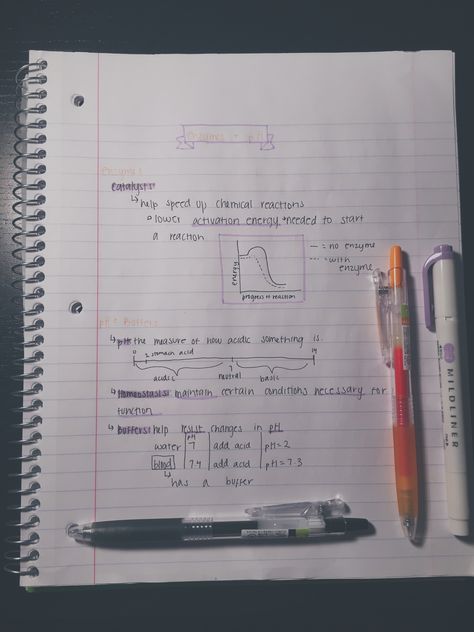 Enzymes + pH
Enzymes
Catalysts:
↳ help speed up chemical reactions
lower activation energy → needed to start
a reaction
energy
progress of reaction
— = no enzyme
--- = with
enzyme
pH + Buffers
↳ pH: the measure of how acidic something is.
0 2 stomach acid 7 14
acidic neutral basic
↳ Homeostasis: maintain certain conditions necessary for
function
↳ Buffers: help resist changes in pH
pH
water 7 add acid pH = 2
blood 7.4 add acid pH = 7.3
↳ has a buffer
MILDLINER